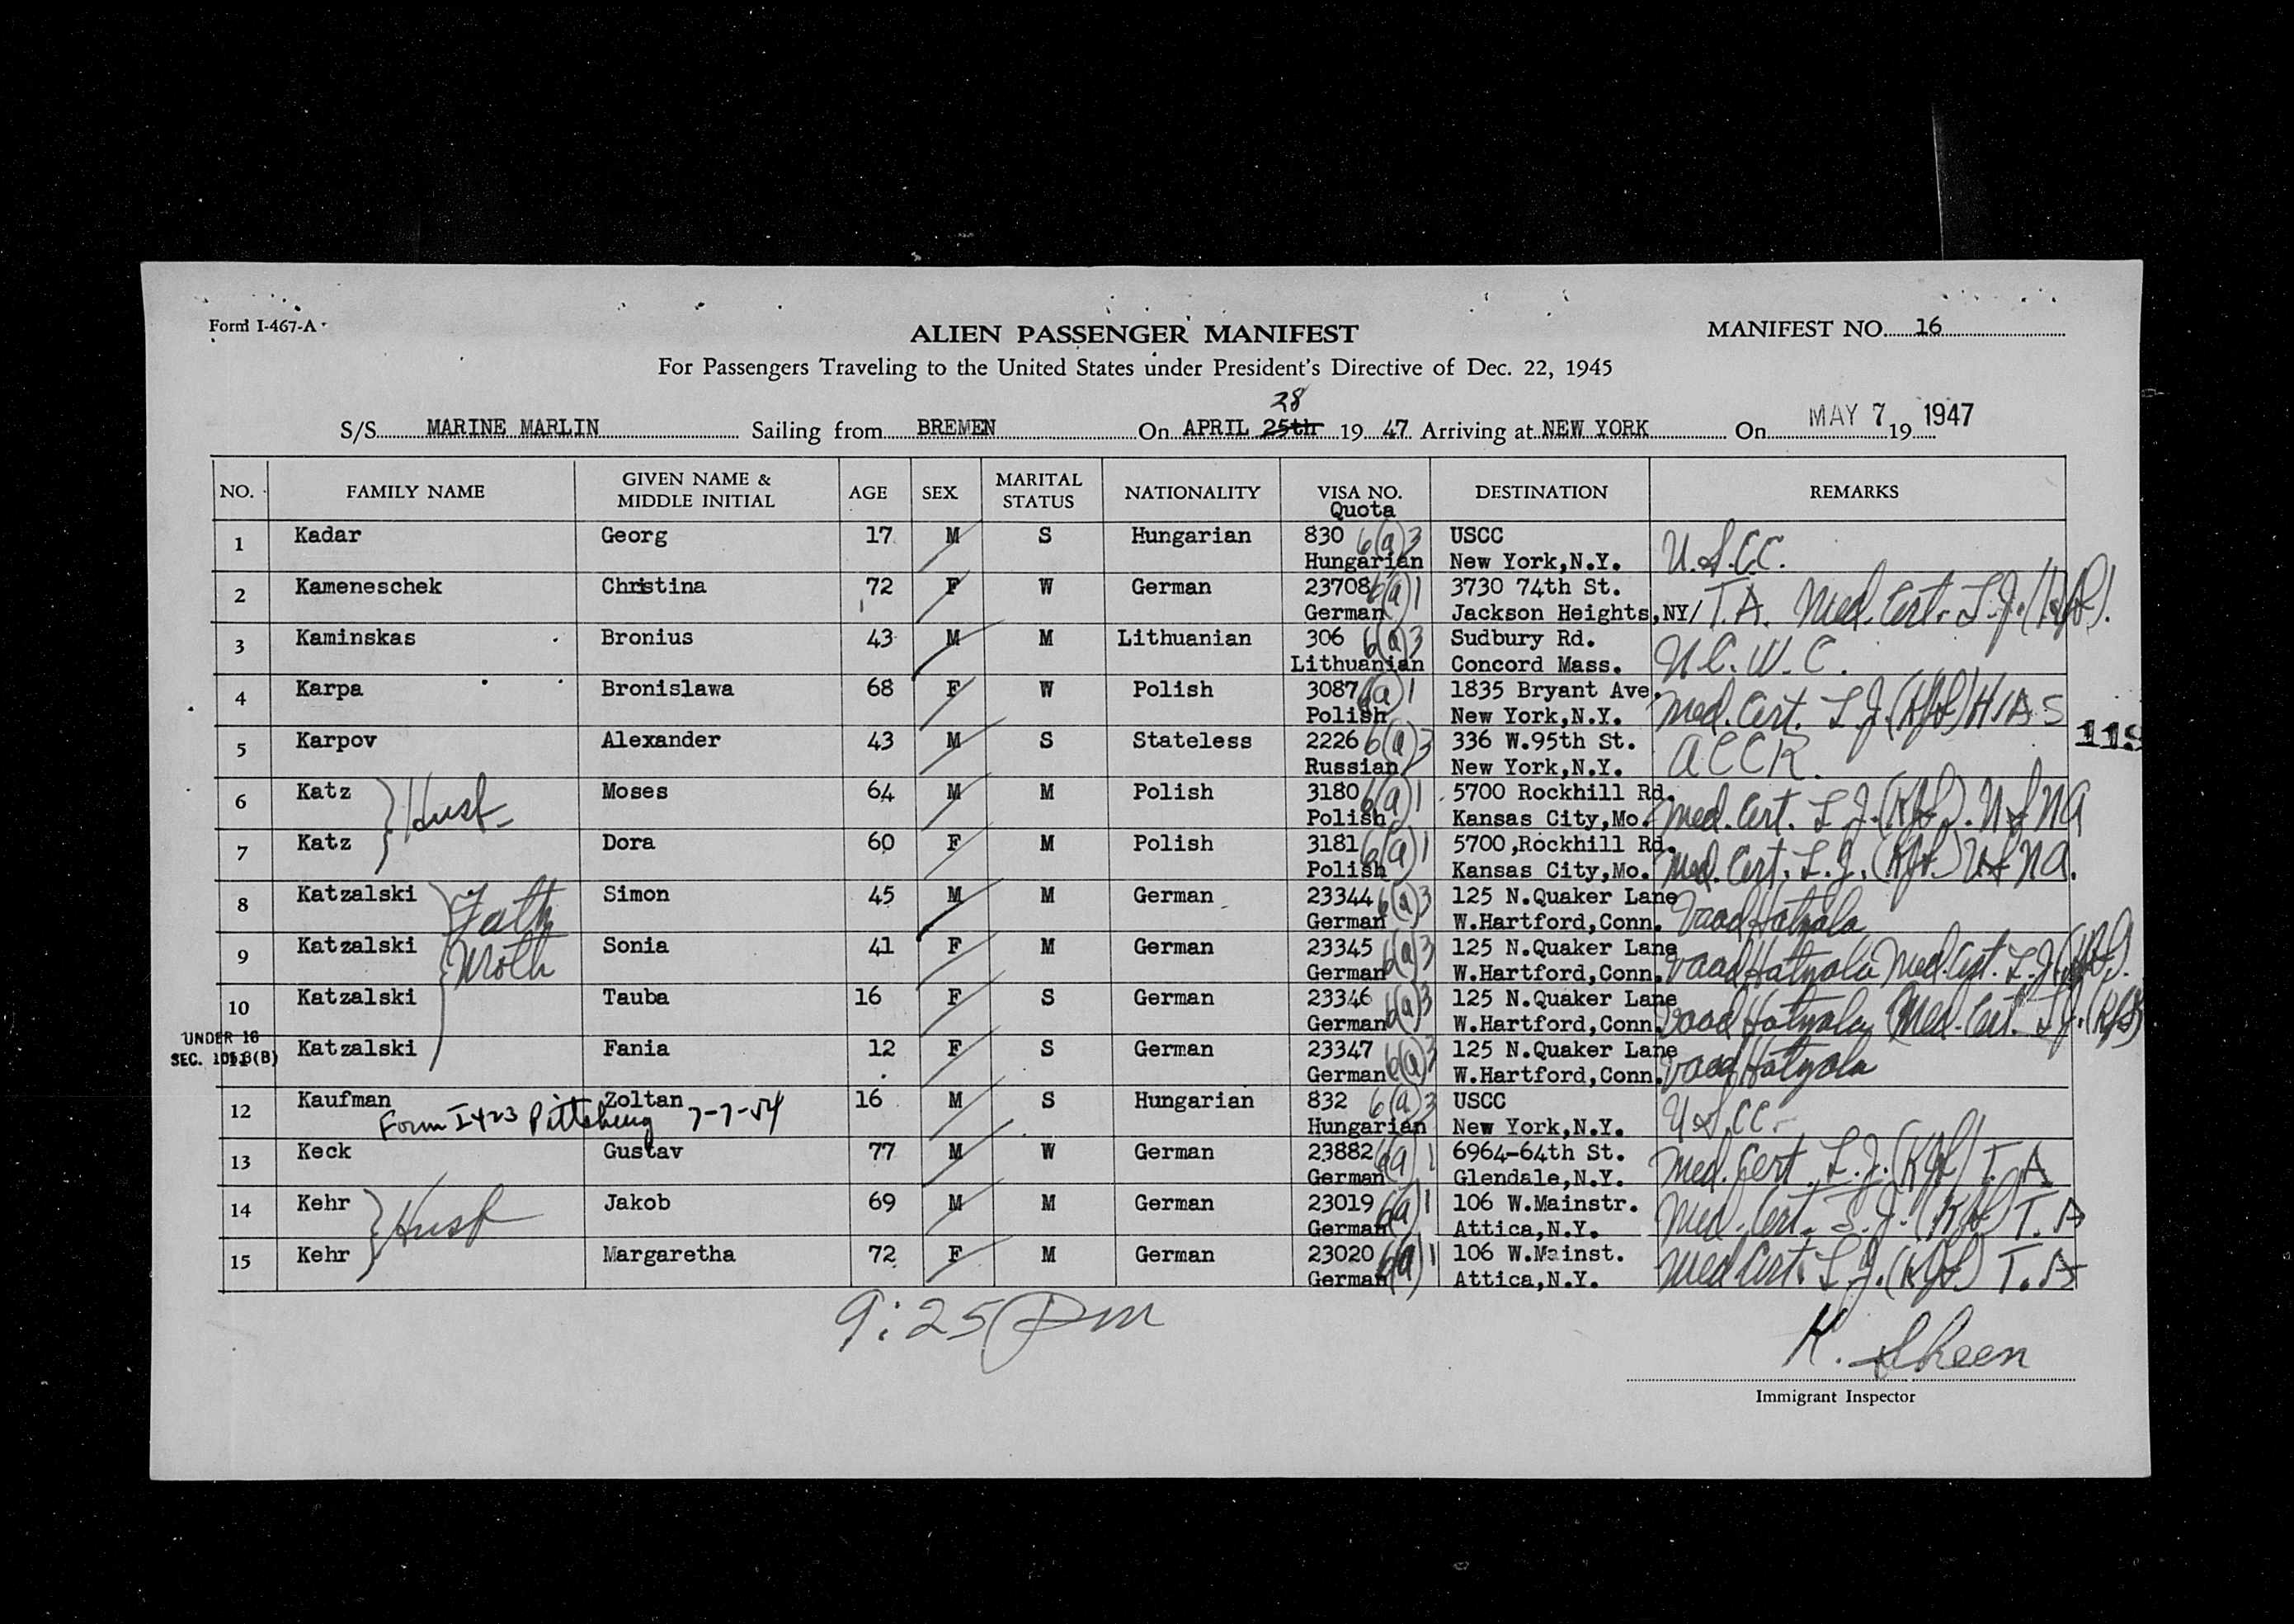 Form I-467-A
ALIEN PASSENGER MANIFEST
MANIFEST NO. 16
For Passengers Traveling to the United States under President's Directive of Dec. 22, 1945
28
S/S MARINE MARLIN Sailing from BREMEN On APRIL 25th 19 47 Arriving at NEW YORK On MAY 7 19 1947
NO. FAMILY NAME GIVEN NAME & MIDDLE INITIAL AGE SEX MARITAL STATUS NATIONALITY VISA NO. Quota DESTINATION REMARKS
1 Kadar Georg 17 M S Hungarian 830 6(a)3 USCC U.S.C.C.
Hungarian New York,N.Y.
2 Kameneschek Christina 72 F W German 23708 6(a)1 3730 74th St. T.A. Med. Cert. L.J.
German Jackson Heights,NY/
3 Kaminskas Bronius 43 M M Lithuanian 306 6(a)3 Sudbury Rd. N.C.W.C.
Lithuanian Concord Mass.
4 Karpa Bronislawa 68 F W Polish 3087 6(a)1 1835 Bryant Ave. Med. Cert. L.J. HIAS
Polish New York,N.Y.
119
5 Karpov Alexander 43 M S Stateless 2226 6(a)3 336 W.95th St. ACCR.
Russian New York,N.Y.
6 Katz Husb Moses 64 M M Polish 3180 6(a)1 5700 Rockhill Rd. Med. Cert. L.J. USNA
Polish Kansas City,Mo.
7 Katz Dora 60 F M Polish 3181 6(a)1 5700,Rockhill Rd. Med. Cert. L.J. USNA.
Polish Kansas City,Mo.
8 Katzalski Fath Simon 45 M M German 23344 6(a)3 125 N.Quaker Lane Vaad Hatzola
German W.Hartford,Conn.
9 Katzalski Moth Sonia 41 F M German 23345 6(a)3 125 N.Quaker Lane Vaad Hatzola Med. Cert. L.J.
German W.Hartford,Conn.
10 Katzalski Tauba 16 F S German 23346 6(a)3 125 N.Quaker Lane Vaad Hatzola Med. Cert. L.J.
German W.Hartford,Conn.
UNDER 16
SEC. (B) Katzalski Fania 12 F S German 23347 6(a)3 125 N.Quaker Lane Vaad Hatzola
German W.Hartford,Conn.
12 Kaufman Zoltan 16 M S Hungarian 832 6(a)3 USCC USCC.
Form I423 Pittsburg 7-7-54 Hungarian New York,N.Y.
13 Keck Gustav 77 M W German 23882 6(a)1 6964-64th St. Med. Cert. L.J. T.A
German Glendale,N.Y.
14 Kehr Husb Jakob 69 M M German 23019 6(a)1 106 W.Mainstr. Med. Cert. L.J. T.A
German Attica,N.Y.
15 Kehr Margaretha 72 F M German 23020 6(a)1 106 W.Mainst. Med Cert. L.J. T.A
German Attica,N.Y.
9:25 Pm
K. Sheen
Immigrant Inspector